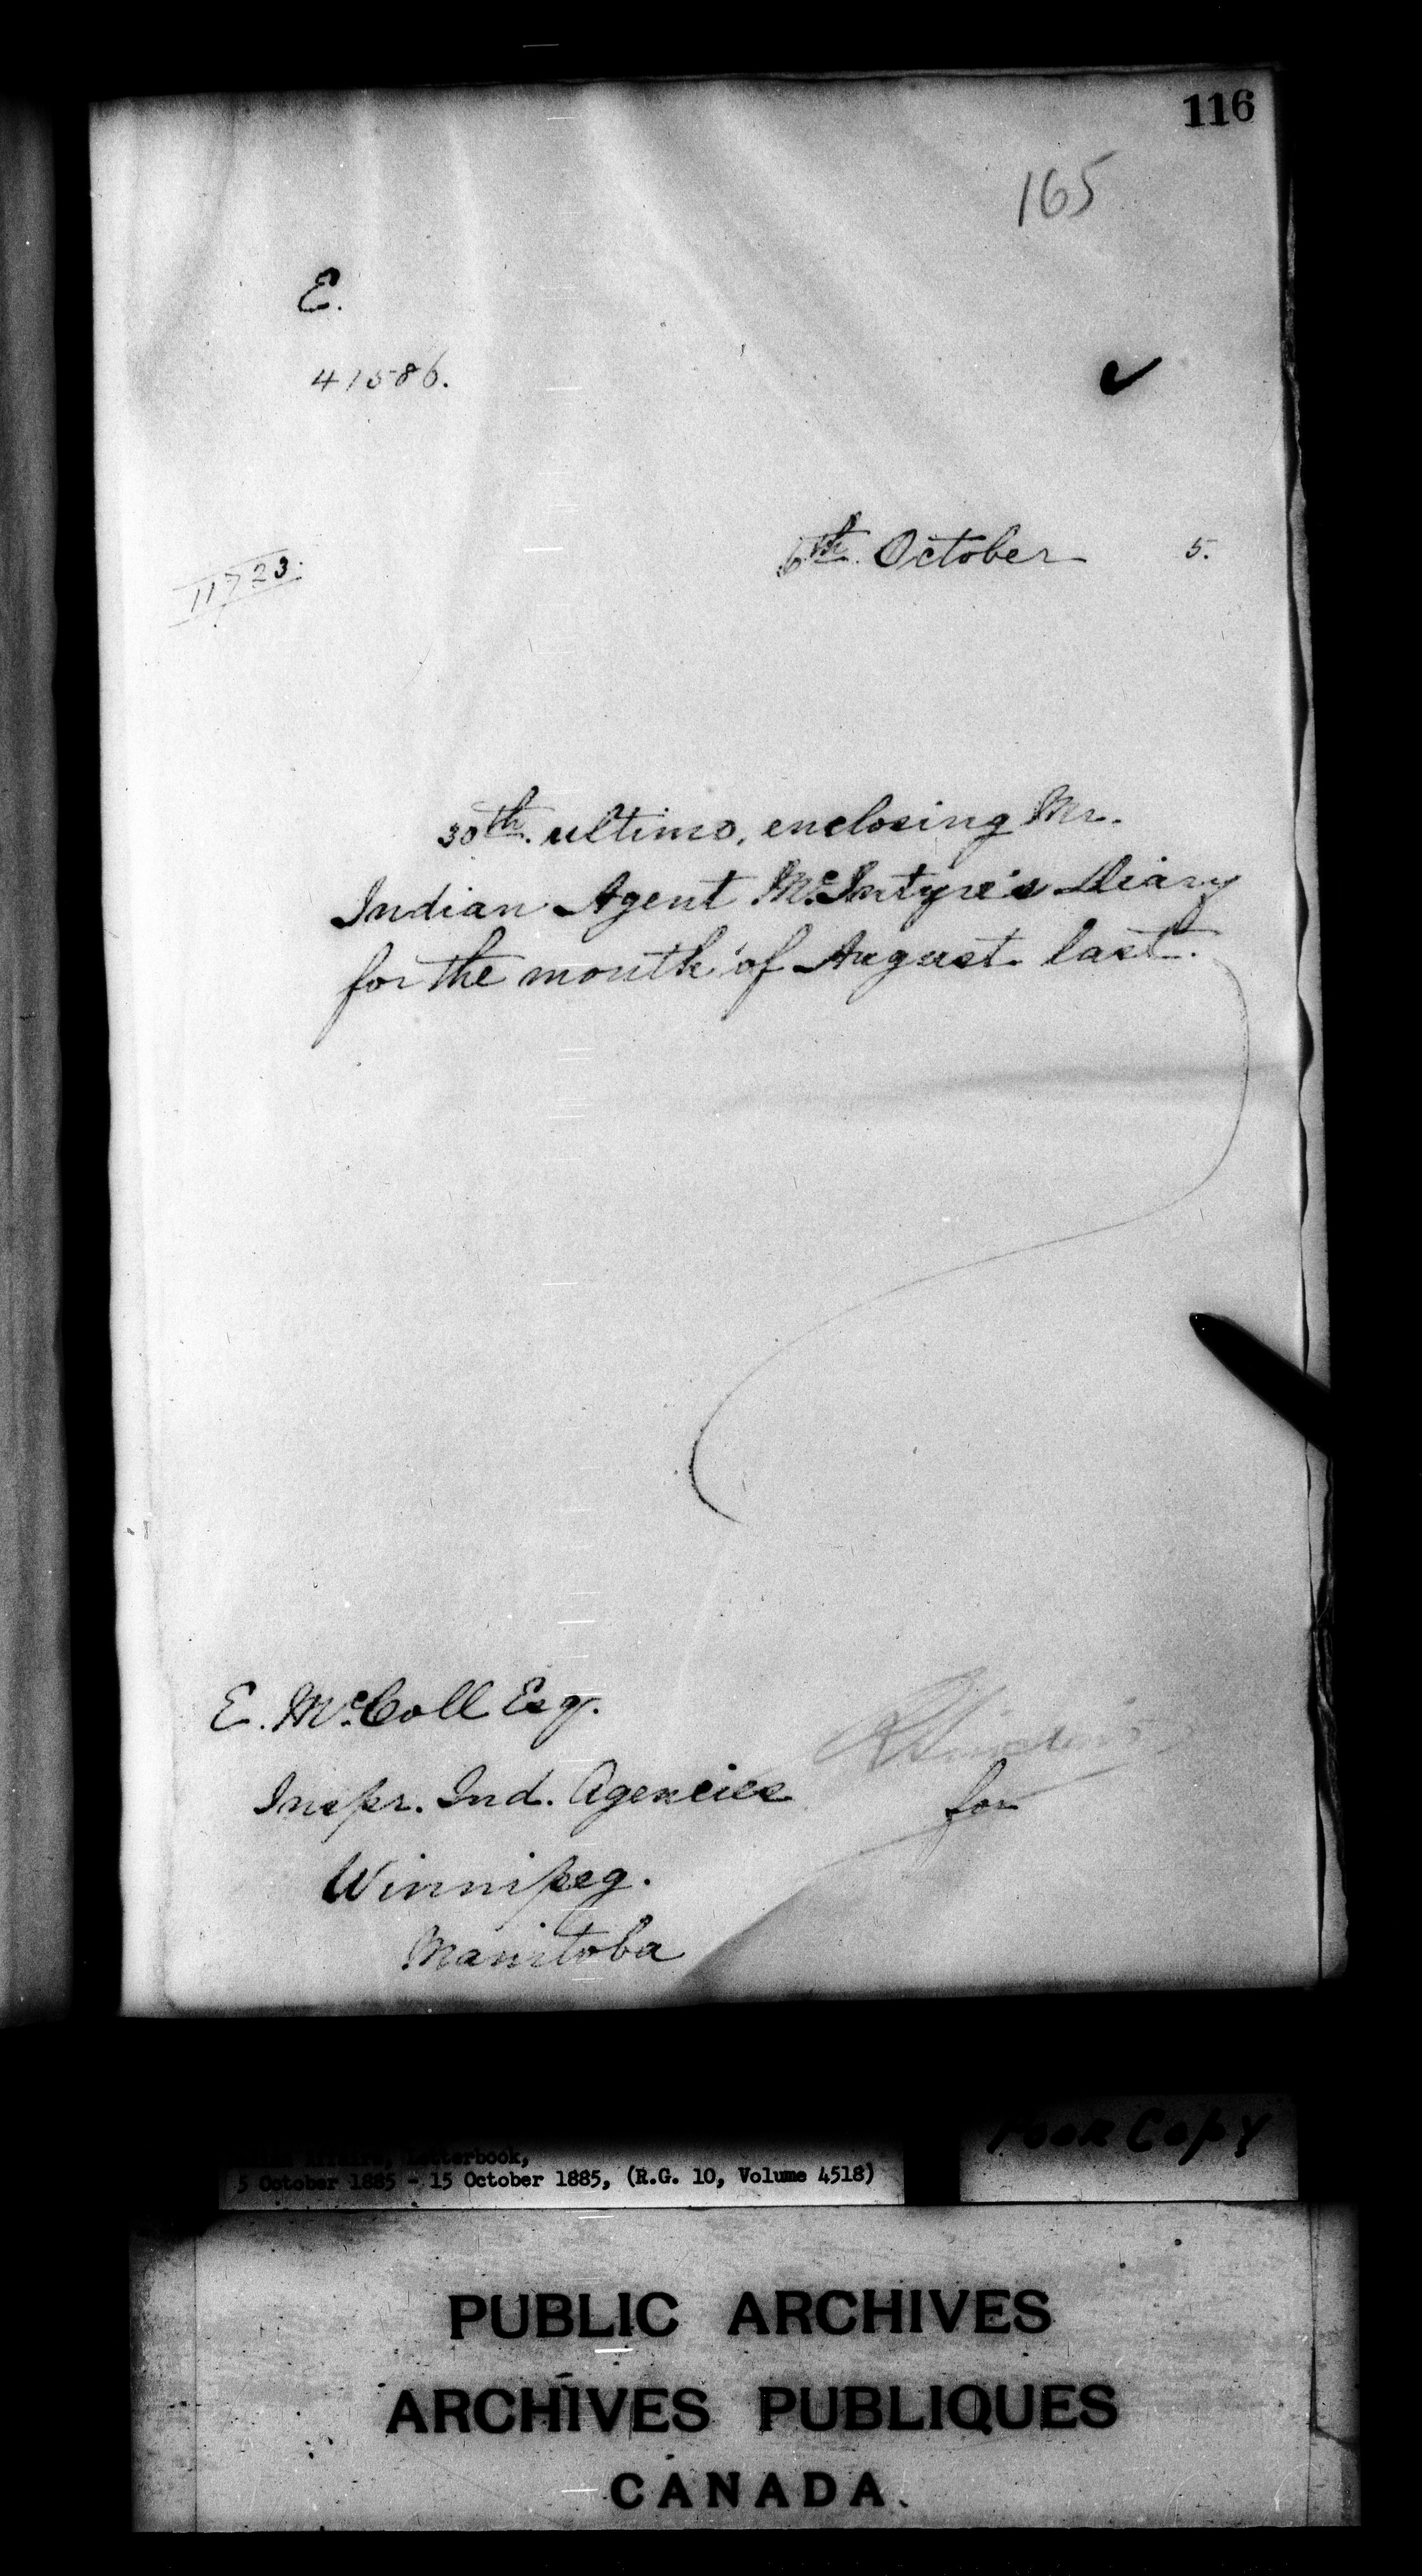 116
165
E.
41586.
6th. October 5.
11723.
30th. ultimo, enclosing Mr.
Indian Agent McIntyre's Diary
for the month of August last.
E. McColl Esq.
Inspr. Ind. Agencies
for
Winnipeg.
Manitoba
Poor Copy
Letterbook,
5 October 1885 - 15 October 1885, (R.G. 10, Volume 4518)
PUBLIC ARCHIVES
ARCHIVES PUBLIQUES
CANADA